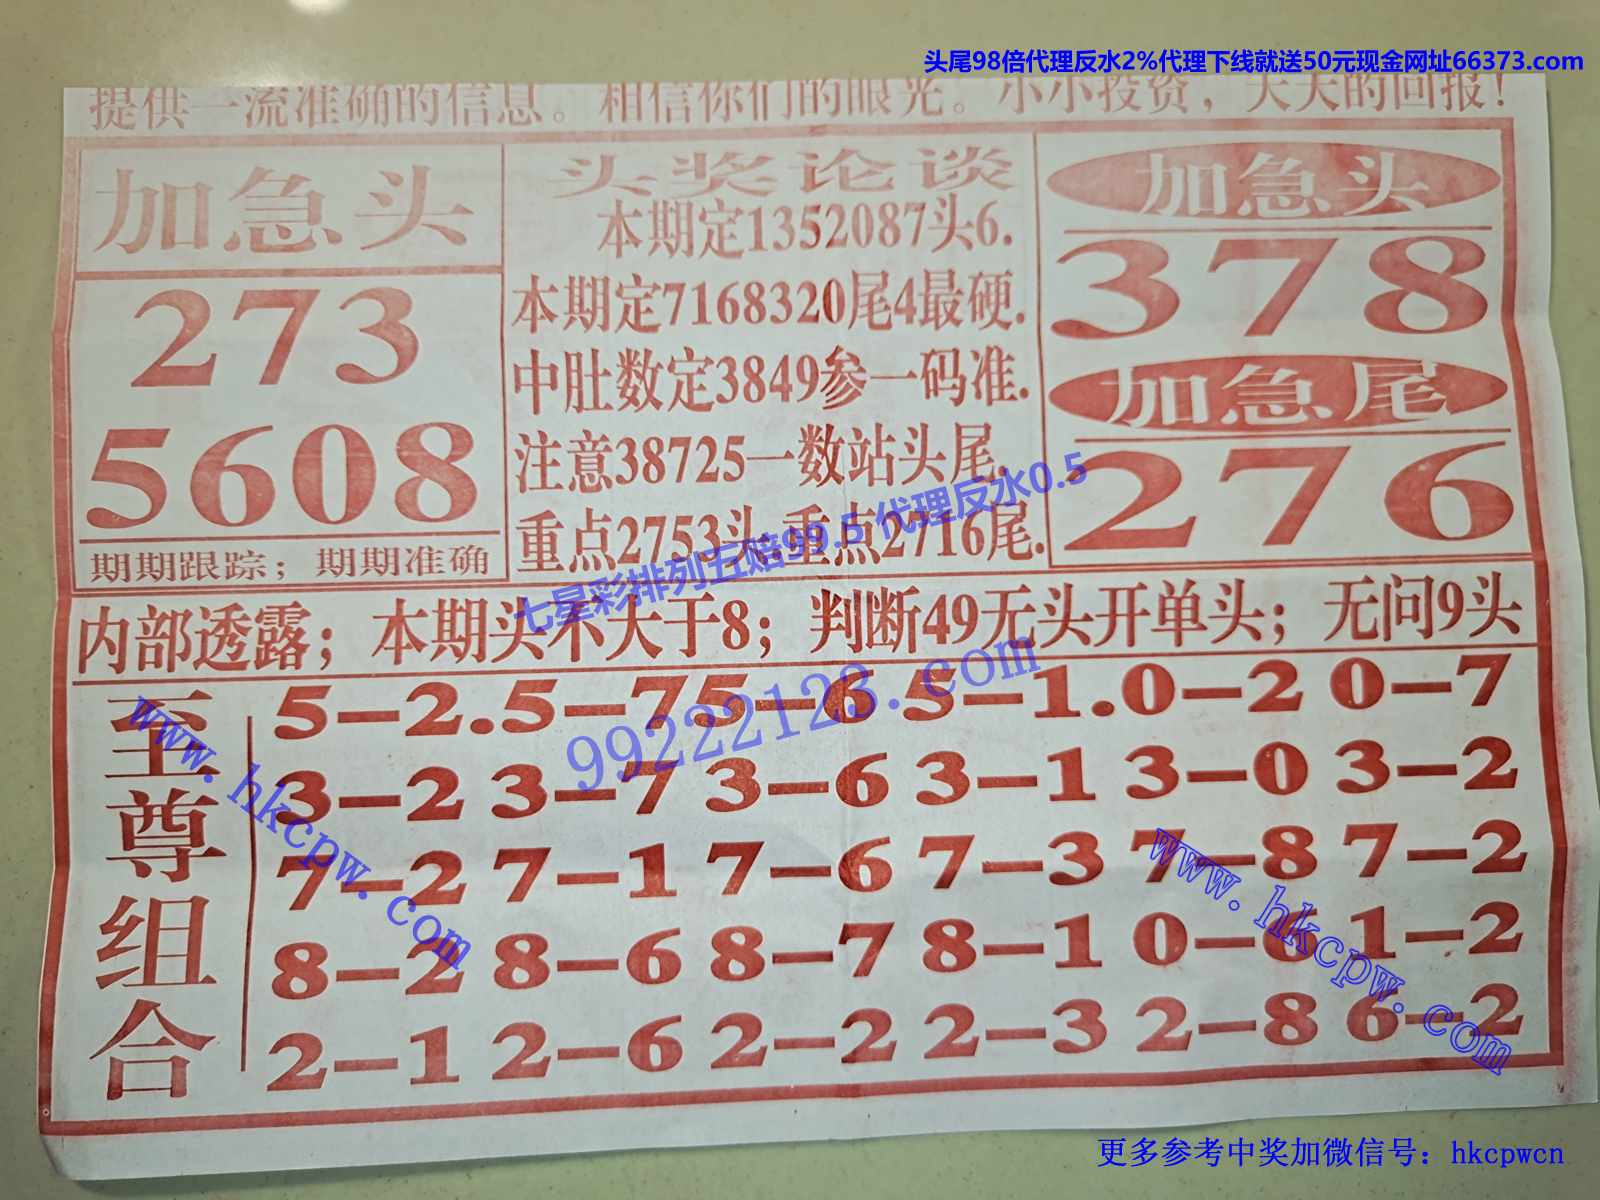 头尾98倍代理反水2%代理下线就送50元现金网址66373.com
提供一流准确的信息。相信你们的眼光。小小投资，天天的回报！
加急头
273
5608
期期跟踪；期期准确
头奖论谈
本期定1352087头6.
本期定7168320尾4最硬.
中肚数定3849参一码准.
注意38725一数站头尾.
重点2753头.重点2716尾.
加急头
378
加急尾
276
七星彩排列五赔99.5 代理反水0.5
内部透露；本期头不大于8；判断49无头开单头；无问9头
99222123.com
至尊组合
5—2.5—75—6 5—1.0—2 0—7
3—2 3—7 3—6 3—1 3—0 3—2
7—2 7—1 7—6 7—3 7—8 7—2
8—2 8—6 8—7 8—1 0—6 1—2
2—1 2—6 2—2 2—3 2—8 6—2
www.hkcpw.com
www.hkcpw.com
更多参考中奖加微信号：hkcpwcn